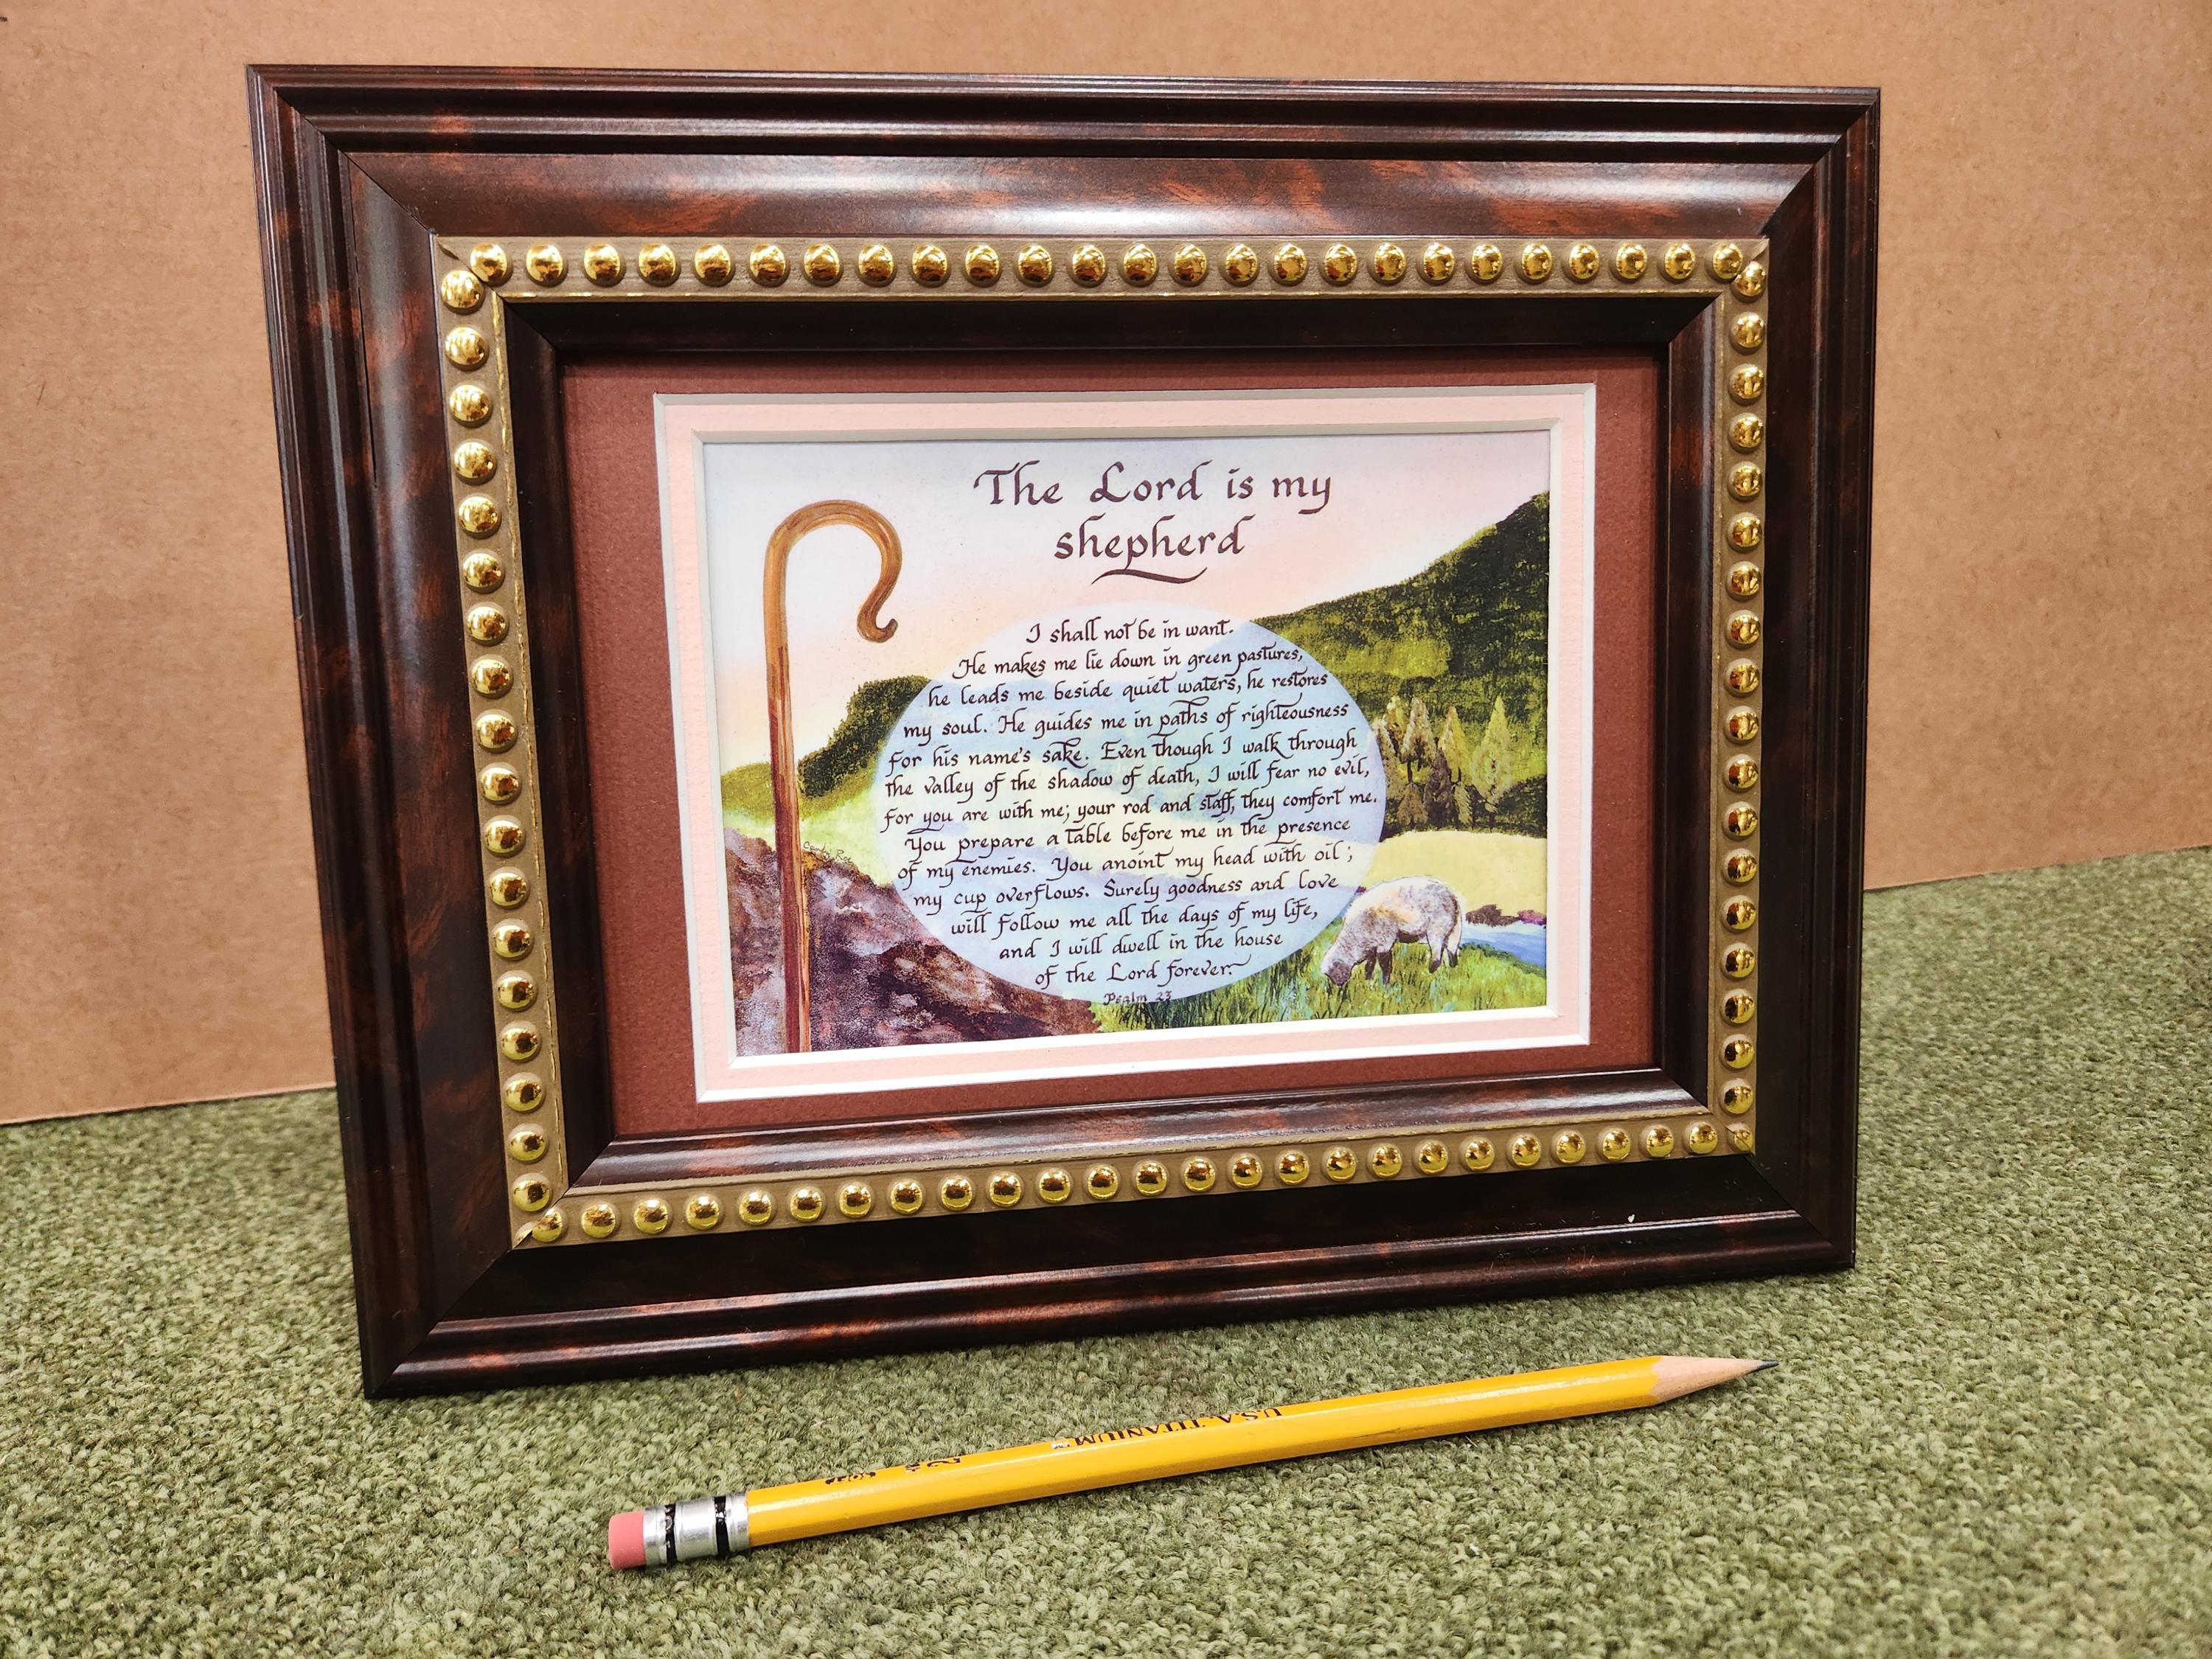 The Lord is my
shepherd
I shall not be in want.
He makes me lie down in green pastures,
he leads me beside quiet waters, he restores
my soul. He guides me in paths of righteousness
for his name's sake. Even though I walk through
the valley of the shadow of death, I will fear no evil,
for you are with me; your rod and staff, they comfort me.
You prepare a table before me in the presence
of my enemies. You anoint my head with oil;
my cup overflows. Surely goodness and love
will follow me all the days of my life,
and I will dwell in the house
of the Lord forever.
Psalm 23
U.S.A. TITANIUM